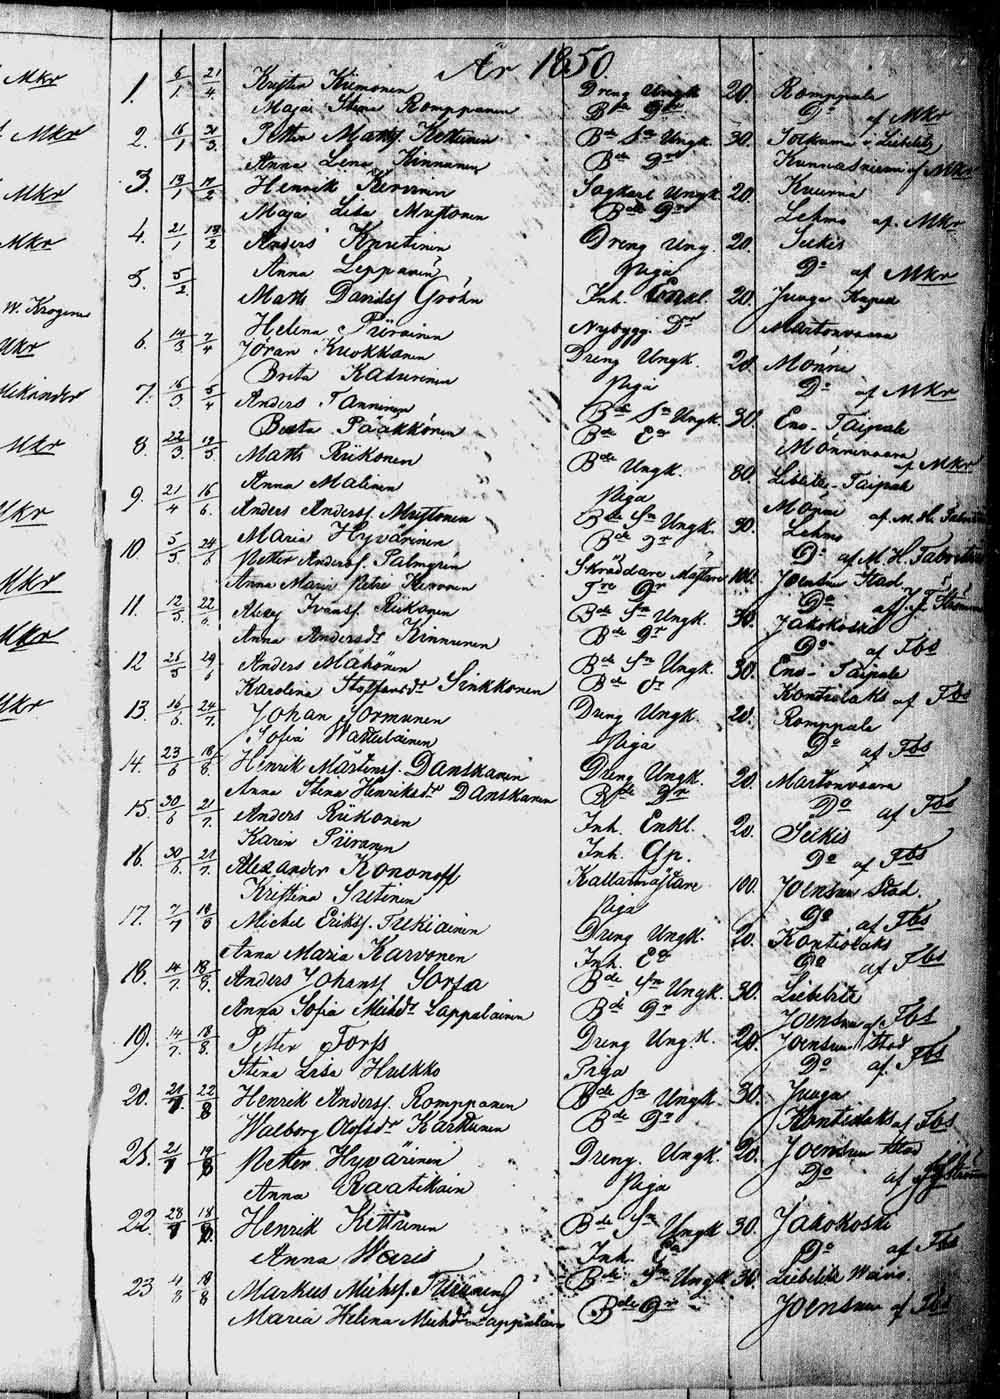 År 1850.
Mkr 1. 6/1 21/4 Kristian Kiemonen Dreng Ungk 20. Romppala
Maja Stina Romppanen Bde Dr Do af Mkr
Mkr 2. 16/1 31/3 Petter Matts. Kettunen Bde Sn Ungk. 30. Liebelitz
Anna Lena Kinnanen Bde Dr Kunnasniemi af Mkr
Mkr 3. 13/1 17/2 Henrik Kervinen Ungk 20. Kuurna
Maja Lisa Mustonen Bde Dr Lehmo af Mkr
Mkr 4. 21/1 19/2 Anders Dreng Ung. 20. Selkis
Anna Leppänen Piga Do af Mkr
W. Krogerus 5. 5/2 Matts Danilss Gröhn Inh. Enkl. 20. Juuga Kapell
Helena Piirainen Nybygg. Dr Martonvaara
Mkr 6. 14/3 7/4 Jöran Kuokkanen Dreng Ungk. 20. Mönni
Brita Katurinen Piga Do af Mkr
7. 16/3 5/4 Anders Tanninen Bde Sn Ungk. 30. Eno-Taipale
Beata Pääkkönen Bde Ea Mönnivaara af Mkr
Mkr 8. 22/3 19/5 Matts Riikonen Bde Ungk. 30. Liebelitz-Taipale
Anna Malinen Piga Mönni af M. H.
Mkr 9. 21/4 16/6. Anders Anderss. Mustonen Bde Sn Ungk. 30. Lehmo
Maria Hyvärinen Bde Dr Do af M. H.
Mkr 10. 5/5 24/6 Petter Anderss. Palmgrén Skräddare Mästare 100. Joensuu Stad
Anna Maria Petri Karvonen Dr Do af J. F.
Mkr 11. 12/5 22/6. Alexej Ivanss. Riikonen Bde Sn Ungk. 30. Jakokoski
Anna Andersdr Kinnunen Bde Dr Do af Fbs
12 26/5 29/6 Anders Mähönen Bde Sn Ungk. 30. Eno-Taipale
Karolina Staffansdr Sinkkonen Bde Dr Kontiolaks af Fbs
Mkr 13. 16/6 24/7. Johan Sormunen Dreng Ungk. 20. Romppala
Sofia Wattulainen Piga Do af Fbs
14. 23/6 18/8. Henrik Mårtenss. Danskanen Dreng Ungk. 20. Martonvaara
Anna Stina Henriksdr Danskanen Bde Dr Do af Fbs
15. 30/6 21/7. Anders Riikonen Inh. Enkl. 20. Selkis
Karin Piironen Inh. Gp. Do af Fbs
16. 30/6 21/7. Alexander Kononoff Kallarmästare 100. Joensuu Stad.
Kristina Piga Do af Fbs
17. 7/7 18/8 Michel Erikss. Turkiainen Dreng Ungk. 20. Kontiolaks
Anna Maria Karvonen Inh. Ea Do af Fbs
18. 14/7. 18/8. Anders Johanss Sorsa Bde Sn Ungk. 30. Liebelitz
Anna Sofia Michdr Lappalainen Bde Dr Joensuu af Fbs
19. 14/7. 18/8. Petter Forss Dreng Ungk. 20. Joensuu Stad
Stina Lisa Hukko Piga Do af. Fbs
20. 21/7. 22/8 Henrik Anderss. Romppanen Bde Sn Ungk. 30. Juuga
Walborg Olofsdr Karttunen Bde Dr Kontiolaks af Fbs
21. 21/7 19/8 Petter Hyvärinen Dreng. Ungk. 20. Joensuu Stad
Anna Raatikain Piga Do af
22. 28/7 18/8. Henrik Kettunen Bde Sn Ungk 30. Jakokoski
Anna Waris Inh. Ea Do af Fbs
23 4/8 18/8 Markus Michss. Turunen Bde Sn Ungk 30. Liebelitz
Maria Helena Michdr Lappalain Bde Dr Joensuu af Fbs